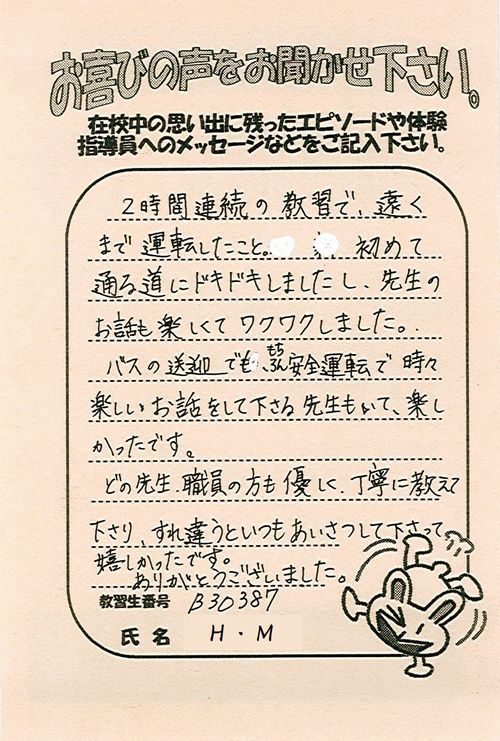 お喜びの声をお聞かせ下さい。
在校中の思い出に残ったエピソードや体験
指導員へのメッセージなどをご記入下さい。
2時間連続の教習で、遠く
まで運転したこと。 初めて
通る道にドキドキしましたし、先生の
お話も楽しくてワクワクしました。
バスの送迎でも、もちろん安全運転で時々
楽しいお話をして下さる先生もいて、楽し
かったです。
どの先生、職員の方も優しく、丁寧に教えて
下さり、すれ違うといつもあいさつして下さって
嬉しかったです。
ありがとうございました。
教習生番号 B30387
氏名 H・M